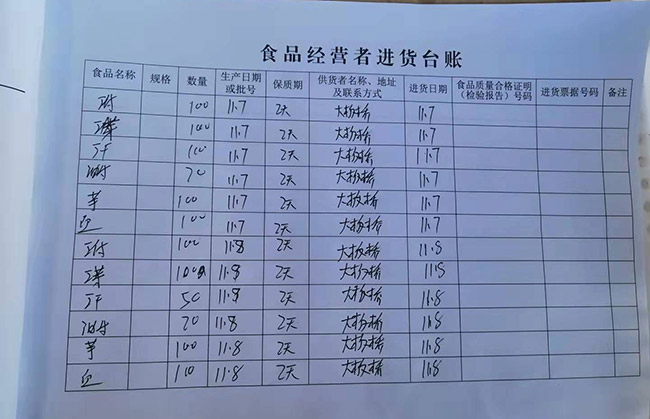 食品经营者进货台账
食品名称 规格 数量 生产日期或批号 保质期 供货者名称、地址及联系方式 进货日期 食品质量合格证明(检验报告)号码 进货票据号码 备注
100 11.7 2天 大板桥 11.7
100 11.7 2天 大板桥 11.7
100 11.7 2天 大板桥 11.7
20 11.7 2天 大板桥 11.7
100 11.7 2天 大板桥 11.7
100 11.7 2天 大板桥 11.7
100 11.8 2天 大板桥 11.8
100 11.8 2天 大板桥 11.8
50 11.8 2天 大板桥 11.8
20 11.8 2天 大板桥 11.8
100 11.8 2天 大板桥 11.8
11.8 2天 大板桥 11.8